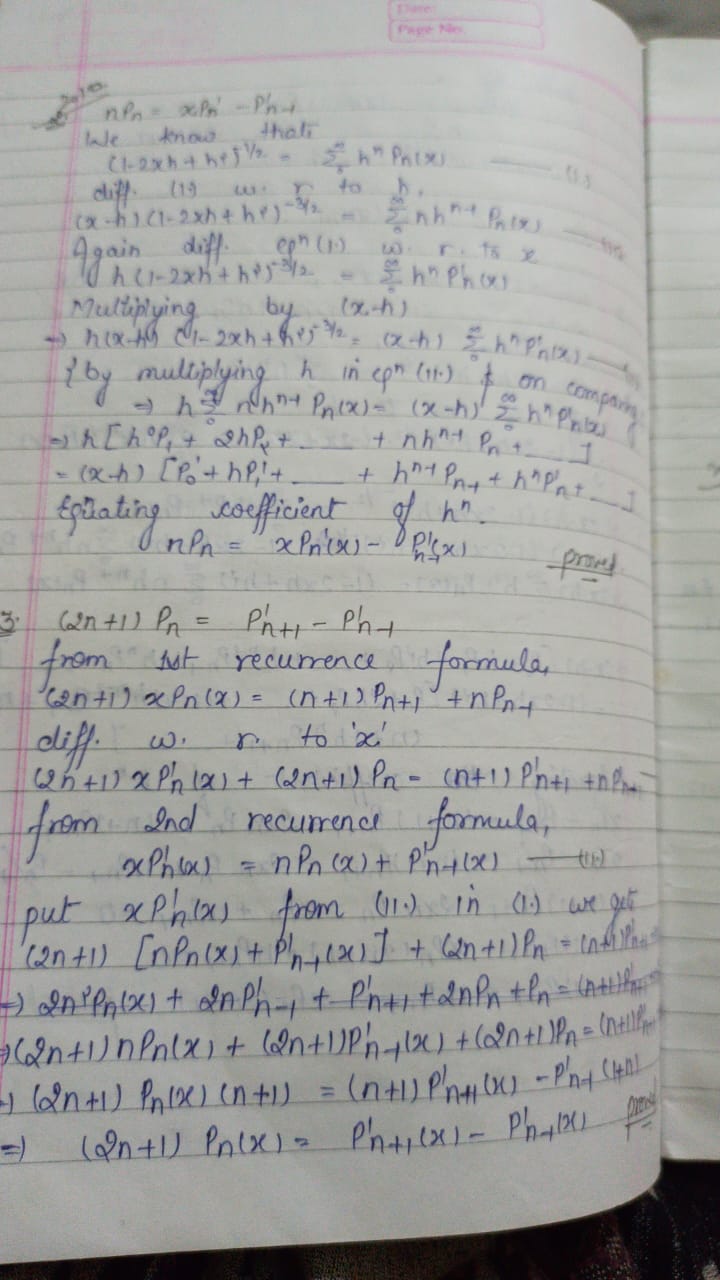 Date:
Page No.
nPn = xPn' - P'n-1
We know that
(1-2xh+h²)^-1/2 = ∞Σ0 h^n Pn(x) —— (1.)
diff. (1) w. r. to h,
(x-h) (1-2xh+h²)^-3/2 = ∞Σ0 nh^n-1 Pn(x) ——
Again diff. eqn (1.) w. r. to x
h (1-2xh+h²)^-3/2 = ∞Σ0 h^n P'n(x)
Multiplying by (x-h)
⇒ h(x-h) (1-2xh+h²)^-3/2 = (x-h) ∞Σ0 h^n P'n(x) —
{by multiplying h in eqn (11.) & on comparing
⇒ h ∞Σ0 nh^n-1 Pn(x) = (x-h) ∞Σ0 h^n P'n(x) }
⇒ h [h⁰P1 + 2hP2 + ___ + nh^n-1 Pn + __]
= (x-h) [P0' + hP1' + ___ + h^n-1 P'n-1 + h^n P'n + __]
Equating coefficient of h^n.
nPn = xPn'(x) - P'n-1(x) proved
3. (2n+1) Pn = P'n+1 - P'n-1
from 1st recurrence formula,
(2n+1) xPn(x) = (n+1) Pn+1 + nPn-1
diff. w. r. to 'x'
(2n+1) xP'n(x) + (2n+1) Pn = (n+1) P'n+1 + nP'n-1
from 2nd recurrence formula,
xP'n(x) = nPn(x) + P'n-1(x) —— (11.)
put xP'n(x) from (11.) in (1.) we get
(2n+1) [nPn(x) + P'n-1(x)] + (2n+1)Pn = (n+1)P'n+1
⇒ 2n²Pn(x) + 2nP'n-1 + P'n+1 + 2nPn + Pn = (n+1)P'n+1
⇒ (2n+1)nPn(x) + (2n+1)P'n-1(x) + (2n+1)Pn = (n+1)P'n+1
⇒ (2n+1) Pn(x) (n+1) = (n+1) P'n+1(x) - P'n-1 (1+n)
⇒ (2n+1) Pn(x) = P'n+1(x) - P'n-1(x) proved